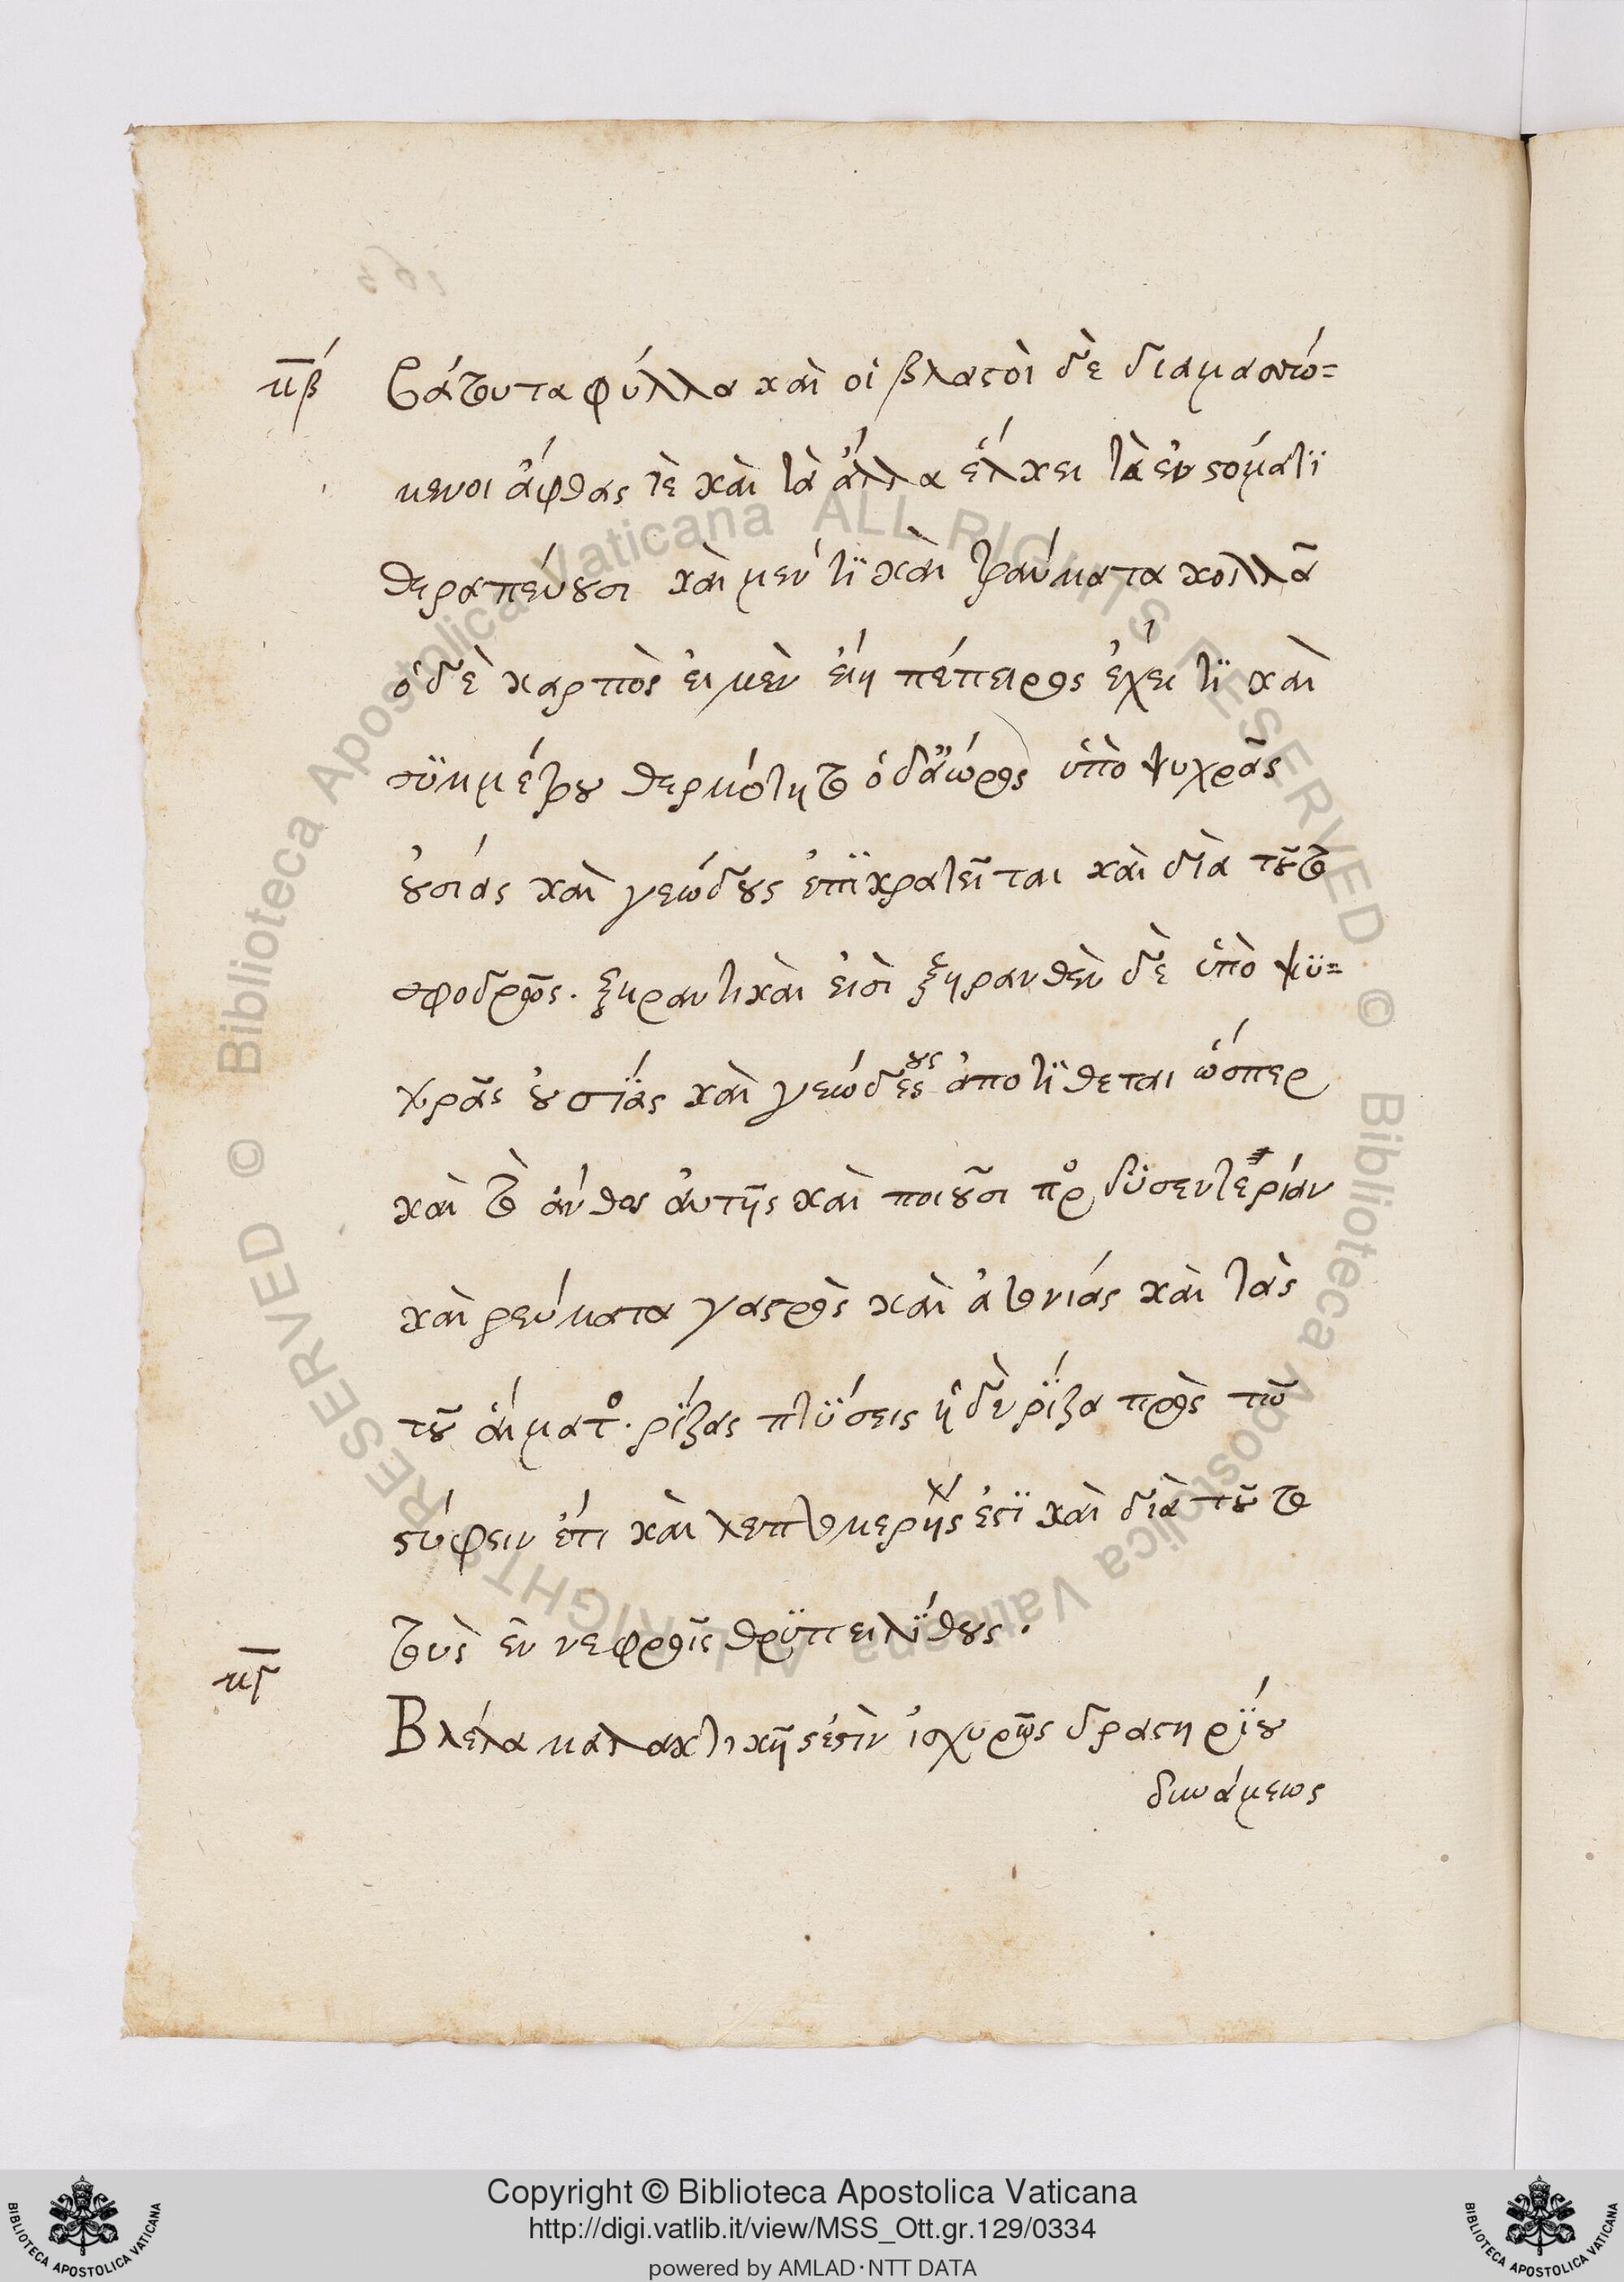 κβ´ βάτου τα φύλλα καὶ οἱ βλαστοὶ δὲ διαμασώ=
μενοι ἄφθας τὲ καὶ τὰ ἄλλα ἕλκει τὰ ἐν στόματϊ
θεραπεύουσι καὶ μέν τϊ καὶ τραύματα κολλᾶ
ὁ δὲ καρπὸς εἰ μὲν εἴη πέπειρος ἔχει τϊ καὶ
συμμέτρου θερμότητο ὁ δ' ἄωρος ὑπὸ ψυχρᾶς
οὐσίας καὶ γεώδους ἐπϊκρατεῖται καὶ διὰ τοῦτο
σφοδρῶς. ξηραντικαὶ εἰσὶ ξηρανθὲν δὲ ὑπὸ ψϋ=
χρᾶς οὐσΐας καὶ γεώδες ους ἀποτΐθεται ὥσπερ
καὶ το ἄνθος ἀυτῆς καὶ ποιοῦσι πρ δϋσεντερίαν
καὶ ρεύματα γαστρὸς καὶ ἀτονιάς καὶ τὰς
τοῦ αἵματο. ρΐζας πτΰσεις ἡ δὲ ρΐζα πρὸς τῶ
στύφειν ἔτι καὶ λεπτομερής ἐστϊ καὶ διὰ τοῦτο
τοὺς ἐν νεφροῖς θρϋπτει λΐθους.
κγ Βλέτα μαλακτικῆς ἐστὶν ἰσχυρῶς δραστηρΐου
δυνάμεως
Copyright © Biblioteca Apostolica Vaticana
http://digi.vatlib.it/view/MSS_Ott.gr.129/0334
powered by AMLAD·NTT DATA
BIBLIOTECA APOSTOLICA VATICANA
BIBLIOTECA APOSTOLICA VATICANA
© Biblioteca Apostolica Vaticana ALL RIGHTS RESERVED © Biblioteca Apostolica Vaticana ALL RIGHTS RESERVED